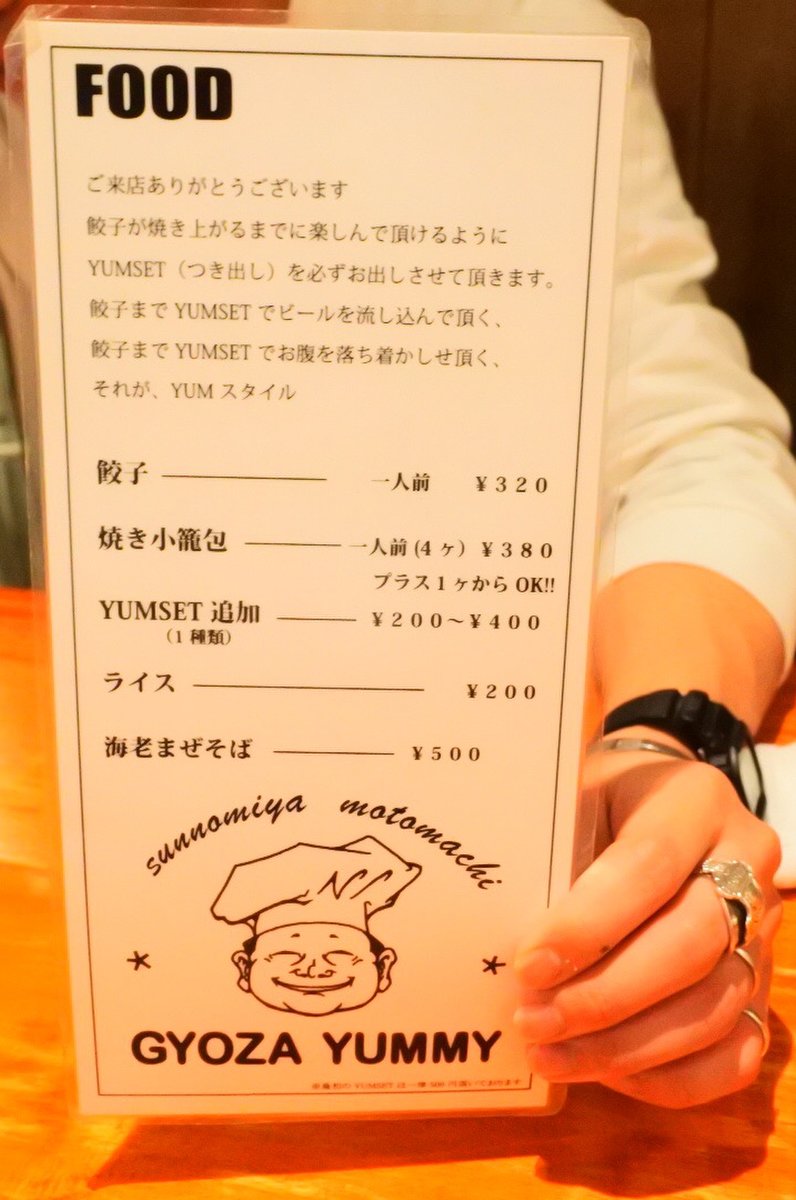 FOOD
ご来店ありがとうございます
餃子が焼き上がるまでに楽しんで頂けるように
YUMSET（つき出し）を必ずお出しさせて頂きます。
餃子まで YUMSET でビールを流し込んで頂く、
餃子まで YUMSET でお腹を落ち着かしせ頂く、
それが、YUM スタイル
餃子 一人前 ￥３２０
焼き小籠包 一人前 (4 ヶ) ￥３８０
プラス 1 ヶから OK!!
YUMSET 追加 ￥２００〜￥４００
（1 種類）
ライス ￥２００
海老まぜそば ￥５００
sunnomiya motomachi
GYOZA YUMMY
YUMSET は一律 500 円頂いております